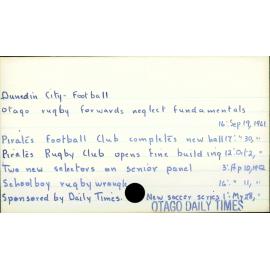 Dunedin City - Football
Otago rugby forwards neglect fundamentals
16: Sep 19, 1961
Pirates Football Club completes new ball 17: " 30, "
Pirates Rugby Club opens fine building 12: Oct 2, "
Two new selectors on senior panel 3: Ap 10, 1962
Schoolboy rugby wrangle 16: " 11, "
Sponsored by Daily Times. New soccer series 1: My 28, "
OTAGO DAILY TIMES